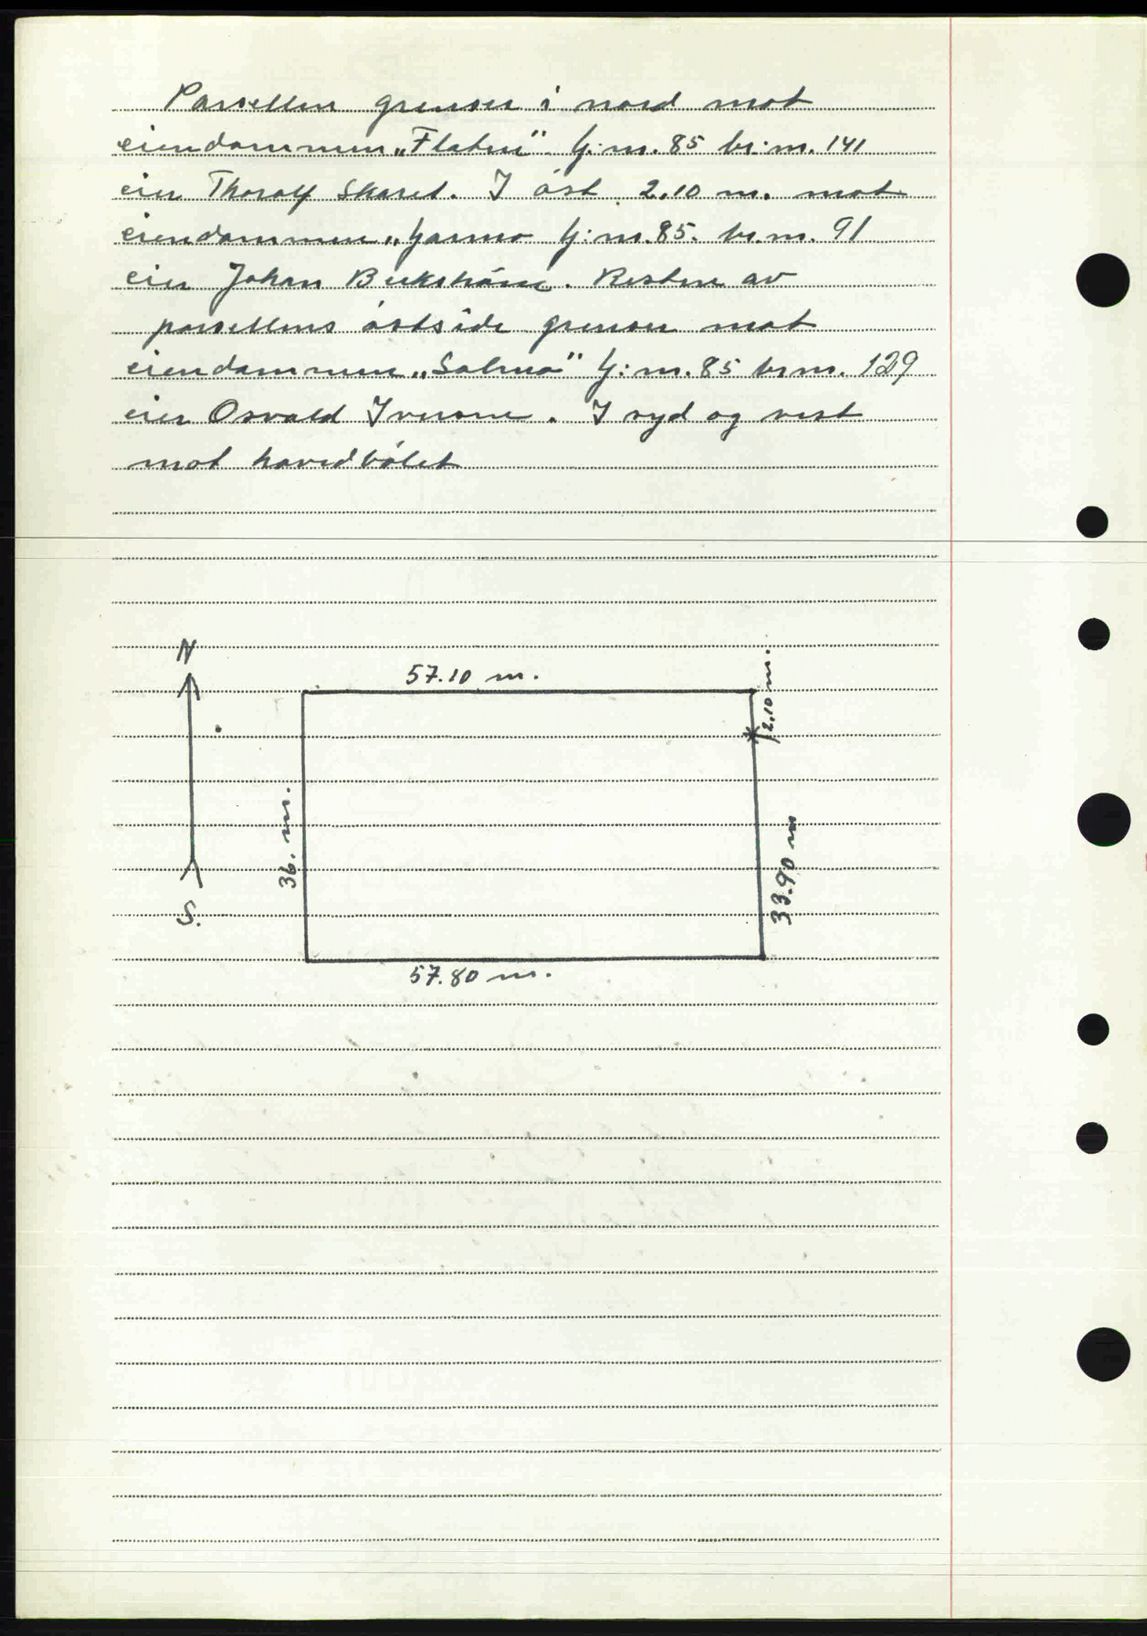 Parsellen grenser i nord mot
eiendommen „Flaten" g.nr. 85 br.nr. 141
eier Thoralf Skaret. I øst 2.10 m. mot
eiendommen „ g.nr. 85. br.nr. 91
eier Johan. Resten av
parsellens østside grenser mot
eiendommen „Solmo" g.nr. 85 br.nr. 129
eier Osvald Iversen. I syd og vest
mot hovedbølet
N
57.10 m.
2.10 m.
36. m.
33.90 m
S.
57.80 m.